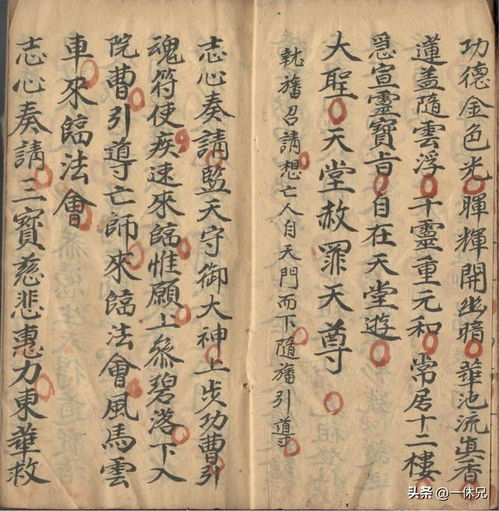 功德金色光暉輝開幽暗華池流眞香
蓮蓋隨雲浮千靈重元和常居十二樓
急宣靈寶旨自在天堂遊
大聖天堂赦罪天尊
執旛召請想亡人自天門而下隨旛引導
志心奏請監天守御大神上步功曹引
魂符使疾速來臨惟願上參碧落下入
院曹引導亡師來臨法會風馬雲
車來臨法會
志心奏請三寶慈悲惠力東華救
头条 @一休兄